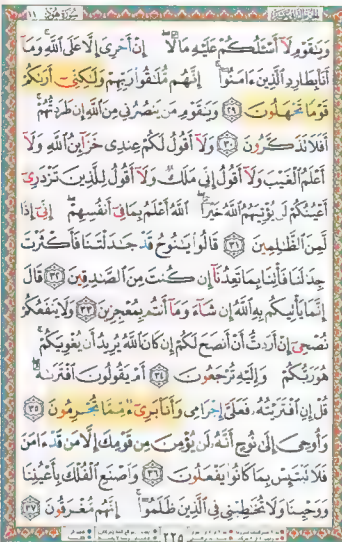 سورة هود ١١
ويقوم لا أسئلكم عليه مالا إن أجرى إلا على الله وما
أنا بطارد الذين ءامنوا إنهم ملقوا ربهم ولكنى أرىكم
قوما تجهلون ٢٩ ويقوم من ينصرنى من الله إن طردتهم
أفلا تذكرون ٣٠ ولا أقول لكم عندى خزائن الله ولا
أعلم الغيب ولا أقول إنى ملك ولا أقول للذين تزدرى
أعينكم لن يؤتيهم الله خيرا الله أعلم بما فى أنفسهم إنى إذا
لمن الظلمين ٣١ قالوا ينوح قد جدلتنا فأكثرت
جدلنا فأتنا بما تعدنا إن كنت من الصدقين ٣٢ قال
إنما يأتيكم به الله إن شاء وما أنتم بمعجزين ٣٣ ولا ينفعكم
نصحى إن أردت أن أنصح لكم إن كان الله يريد أن يغويكم
هو ربكم وإليه ترجعون ٣٤ أم يقولون افترىه
قل إن افتريته فعلى إجرامى وأنا برىء مما تجرمون ٣٥
وأوحى إلى نوح أنه لن يؤمن من قومك إلا من قد ءامن
فلا تبتئس بما كانوا يفعلون ٣٦ واصنع الفلك بأعيننا
ووحينا ولا تخطبنى فى الذين ظلموا إنهم مغرقون ٣٧
٢٢٥